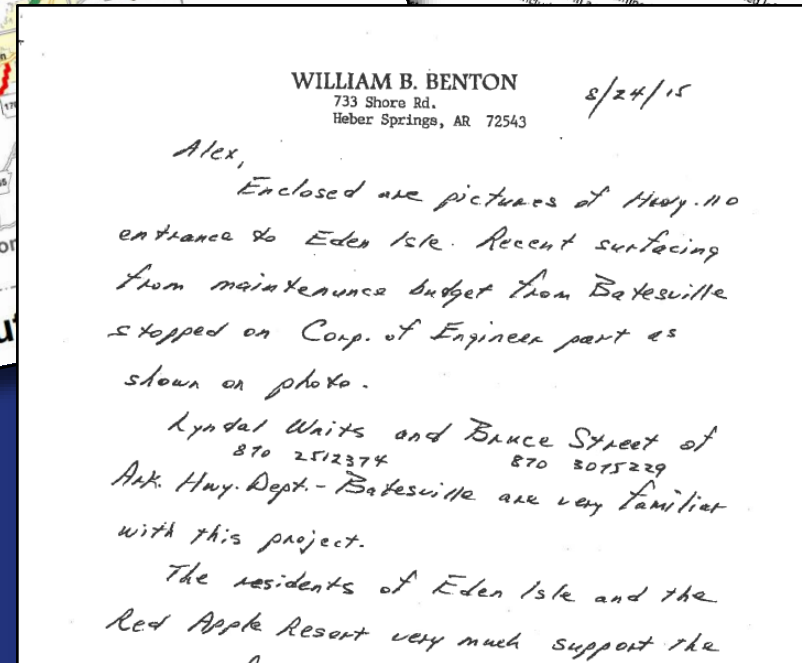 WILLIAM B. BENTON
733 Shore Rd.
Heber Springs, AR 72543
8/24/15
Alex,
Enclosed are pictures of Hwy. 110
entrance to Eden Isle. Recent surfacing
from maintenance budget from Batesville
stopped on Corp. of Engineer part as
shown on photo.
Lyndal Waits and Bruce Street of
870 2512374 870 3075229
Ark. Hwy. Dept. - Batesville are very familiar
with this project.
The residents of Eden Isle and the
Red Apple Resort very much support the